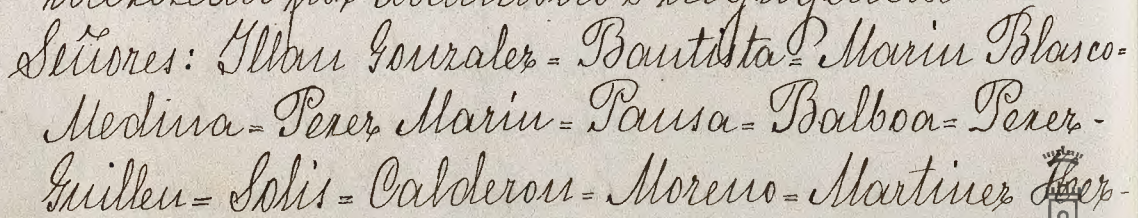 Señores: Illan Gonzalez = Bautista = Marin Blasco =
Medina = Perez Marin = Pausa = Balboa = Perez -
Guillen = Solis = Calderon = Moreno = Martinez